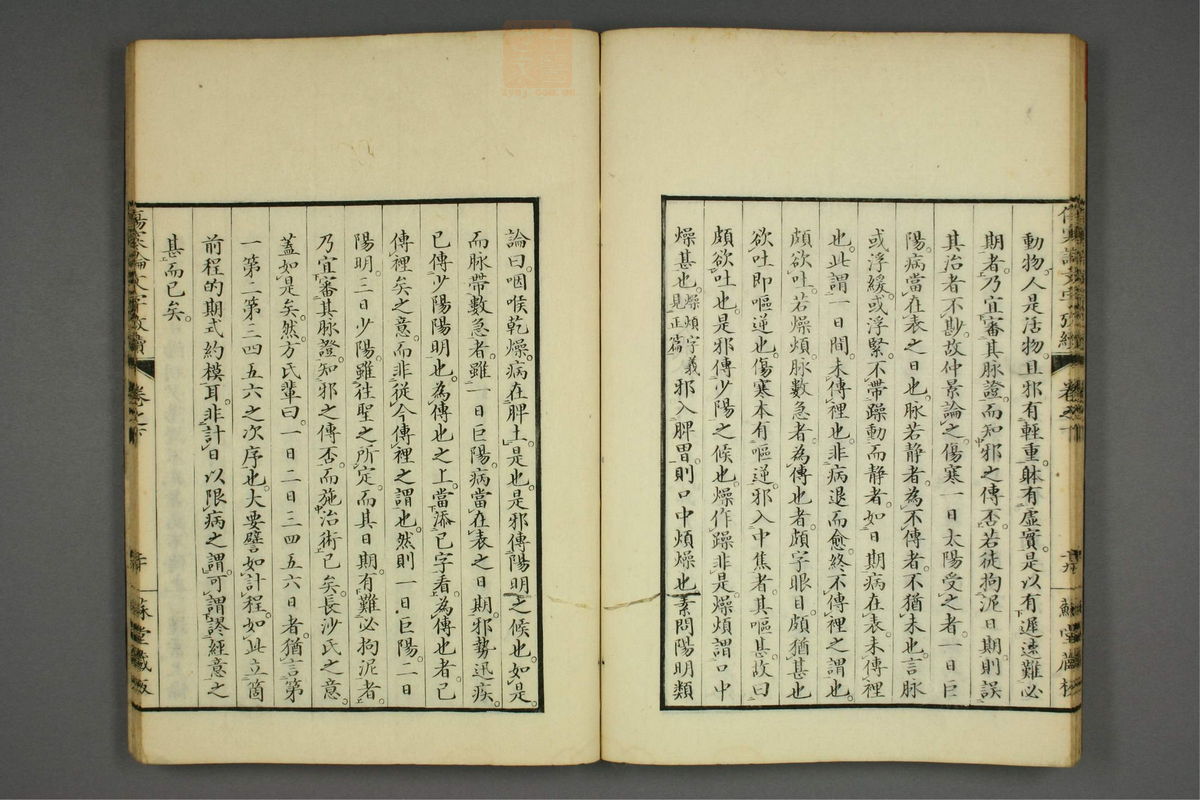 動物。人是活物。且邪有輕重。躰有虛實。是以有遲速難必
期者。乃宜審其脉證。而知邪之傳否。若徒拘泥日期。則誤
其治者不尠。故仲景論之。傷寒一日太陽受之者。一日巨
陽。病當在表之日也。脉若静者。為不傳者。不猶未也。言脉
或浮緩。或浮緊。不帶躁動而静者。如日期病在表。未傳裡
也。此謂一日間未傳裡也。非病退而愈。終不傳裡之謂也。
頗欲吐。若燥煩。脉數急者。為傳也者。頗字眼目。頗猶甚也。
欲吐即嘔逆也。傷寒本有嘔逆。邪入中焦者。其嘔甚。故曰
頗欲吐也。是邪傳少陽之候也。燥作躁非是。燥煩謂口中
燥甚也。燥煩字義見正篇 邪入脾胃。則口中煩燥也。素問陽明類
論曰。咽喉乾燥。病在脾土。是也。是邪傳陽明之候也。如是
而脉帶數急者。雖一日巨陽。病當在表之日期。邪勢迅疾。
已傳少陽陽明也。為傳也之上。當添已字看。為傳也者。已
傳裡矣之意。而非從今傳裡之謂也。然則一日巨陽。二日
陽明。三日少陽。雖往聖之所定。而其日期有難必拘泥者。
乃宜審其脉證。知邪之傳否。而施治術已矣。長沙氏之意。
蓋如是矣。然方氏輩曰。一日二日三四五六日者。猶言第
一第二第三四五六之次序也。大要譬如計程。如此立箇
前程的期式約模耳。非計日以限病之謂。可謂謬經意之
甚而已矣。
傷寒論文字攷續
卷之下
蘇堂藏板